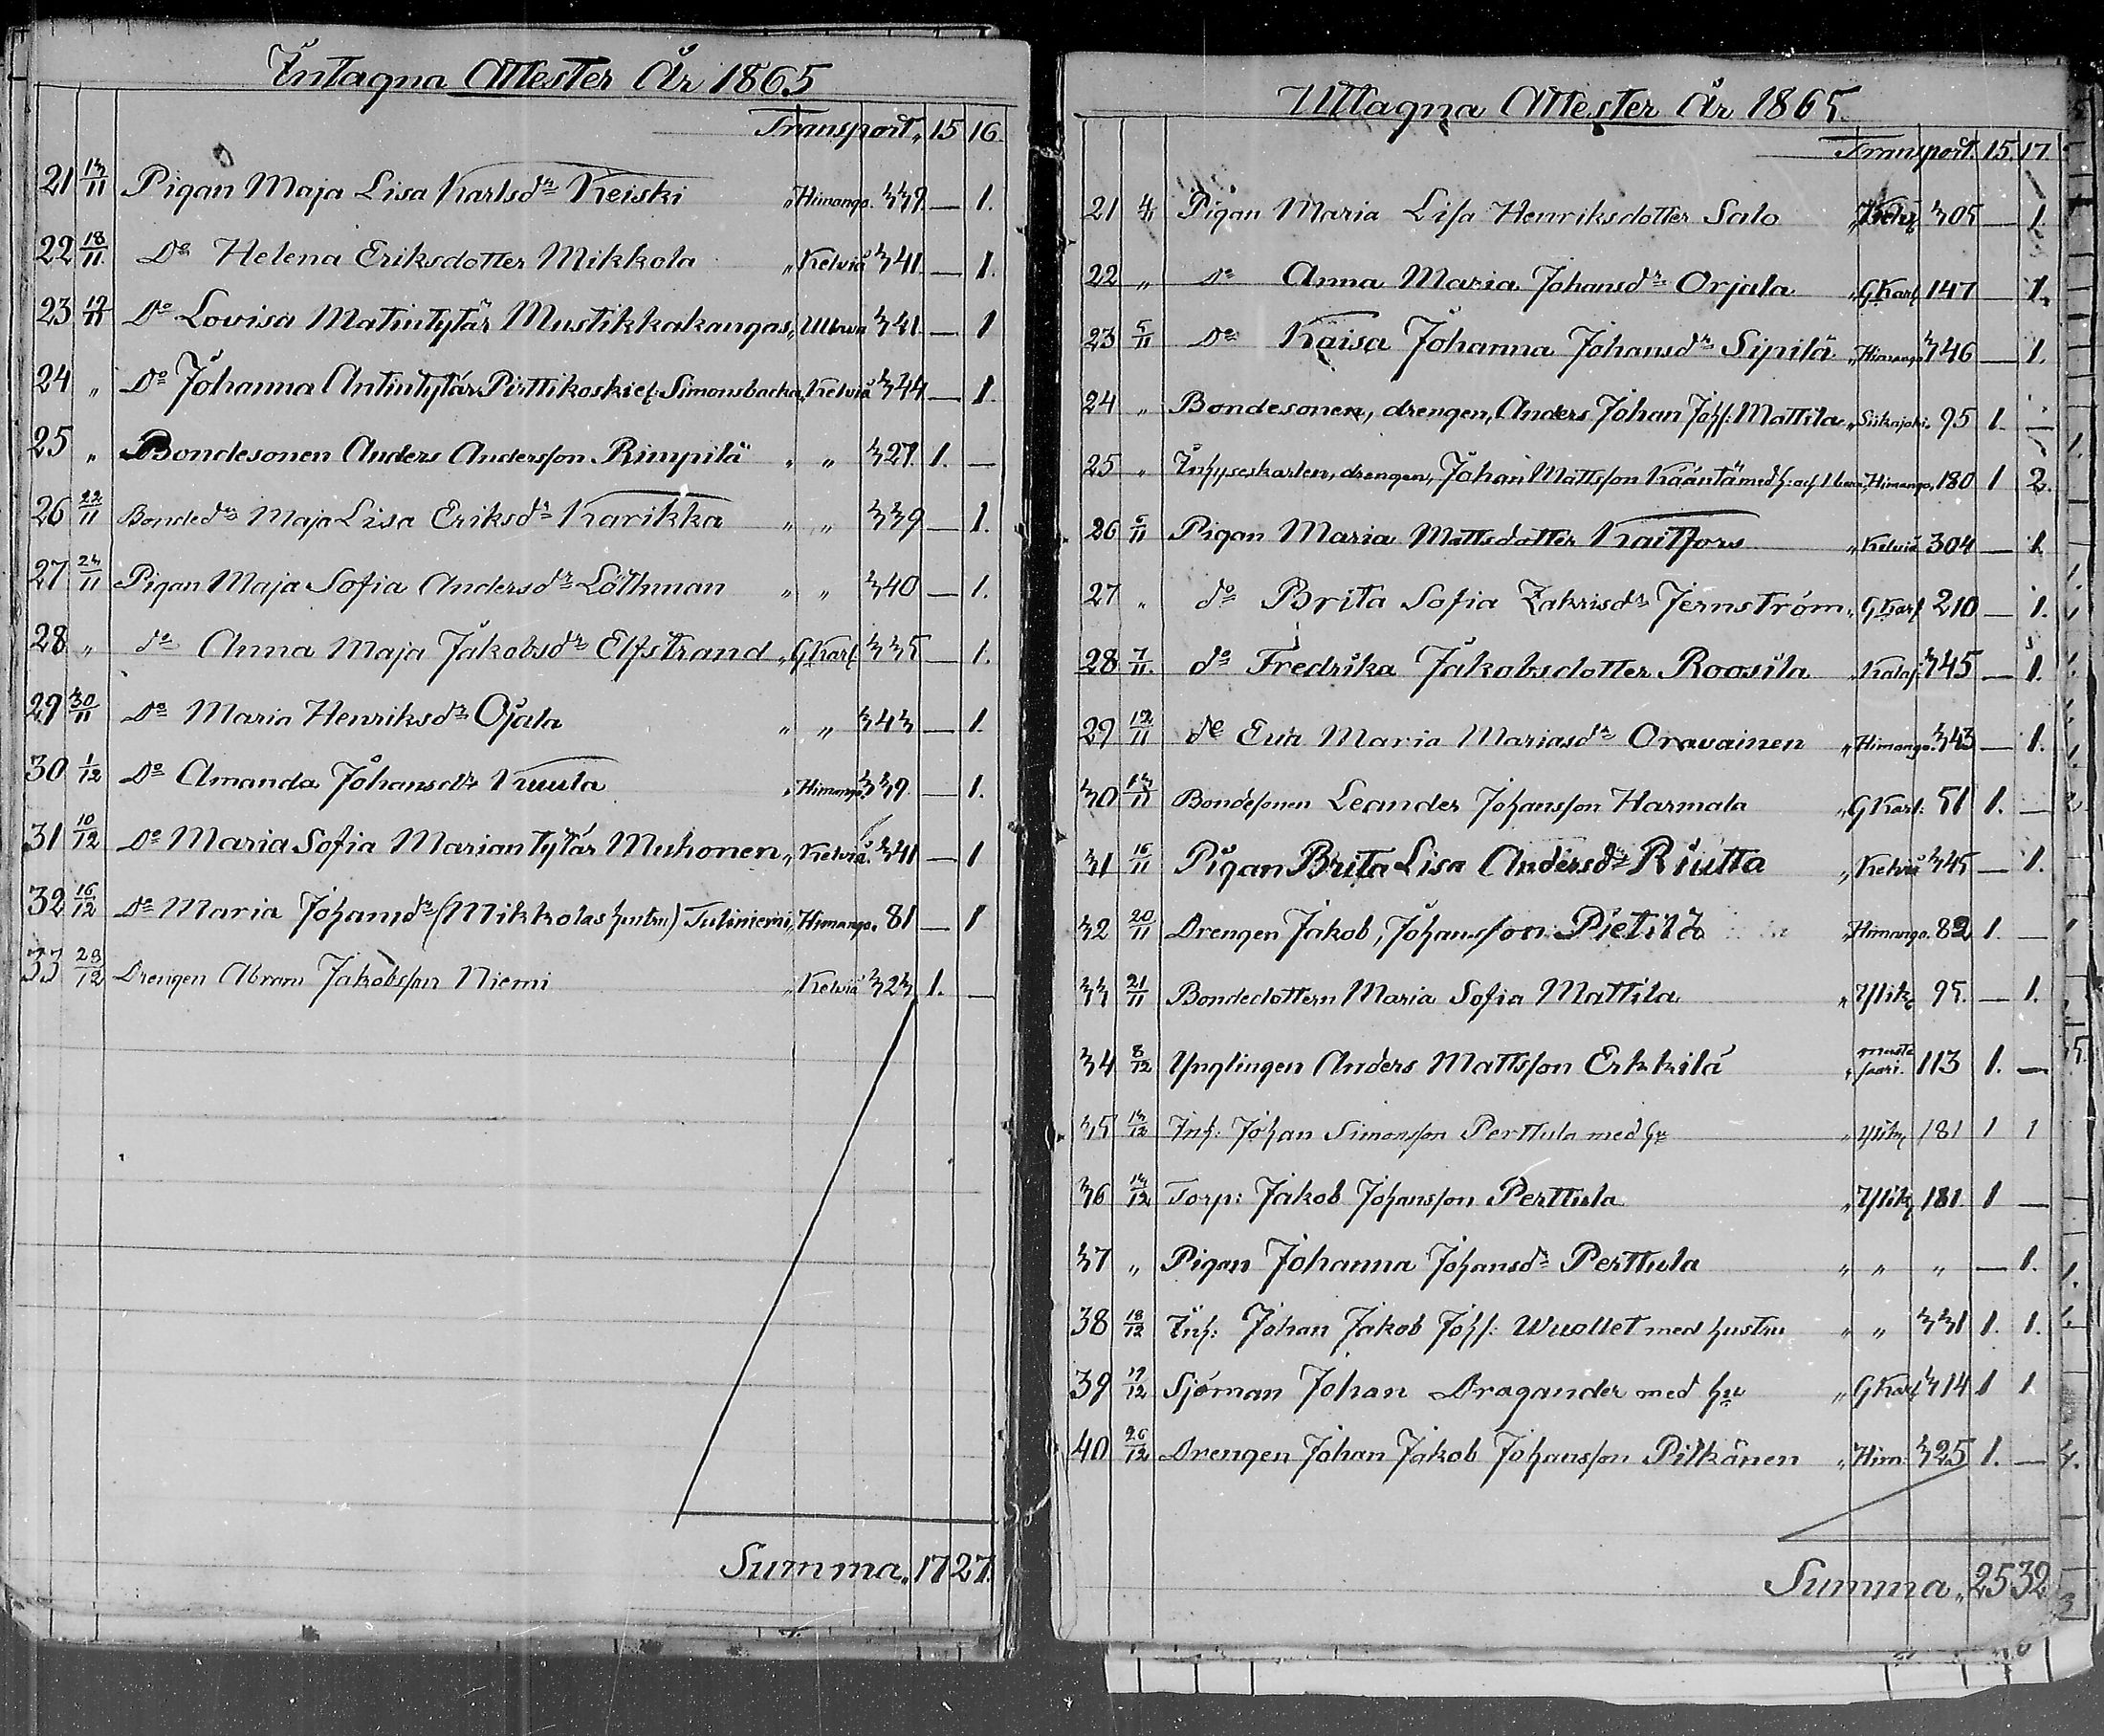 Intagna Attester År 1865
Transport. 15 16.
21 13/11 Pigan Maja Lisa Karlsdr Keiski " Himango. 339. — 1.
22 18/11 Do Helena Eriksdotter Mikkola " Kelviå 341. — 1.
23 19/11 Do Lovisa Matintytär Mustikkakangas " Ullava 341. — 1
24 " Do Johanna Antintytär Pirttikoski el. Simonsbacka " Kelviå 344 — 1.
25 " Bondesonen Anders Andersson Rimpilä " " 327. 1. —
26 22/11 Bondedr Maja Lisa Eriksdr Karikka " " 339 — 1.
27 23/11 Pigan Maja Sofia Andersdr Löthman " " 340 — 1.
28 " do Anna Maja Jakobsdr Elfstrand " GKarl. 335 — 1.
29 30/11 Do Maria Henriksdr Ojala " " 343 — 1.
30 1/12 Do Amanda Johansdr Kuula " Himango. 339. — 1.
31 10/12 Do Maria Sofia Mariantytär Muhonen " Kelviå. 341 — 1
32 16/12 Do Maria Johansdr (Mikkolas hustru) Tuliniemi " Himango. 81 — 1
33 29/12 Drengen Abram Jakobsson Niemi " Kelviå 323 1. —
Summa. 17 27.
Uttagna Attester År 1865.
Transport. 15. 17.
21 4/11 Pigan Maria Lisa Henriksdotter Salo " 305 — 1.
22 " Do Anna Maria Johansdr Orjala " GKarl 147 — 1.
23 5/11 Do Kaisa Johanna Johansdr Sipilä " Himango 346 — 1.
24 " Bondesonen, drengen, Anders Johan Johs. Mattila " Siikajoki. 95 1. —
25 " Inhyseskarlen, drengen, Johan Mattsson Kääntä med h: och 1 barn " Himango. 180 1 2.
26 6/11 Pigan Maria Mattsdotter Kaitfors " Kelviå 304 — 1.
27 " do Brita Sofia Zakrisdr Jernström " GKarl 210 — 1.
28 7/11. do Fredrika Jakobsdotter Roosila " Kalaj. 345 — 1.
29 12/11 do Eva Maria Mariasdr Oravainen " Himango. 343 — 1.
30 13/11 Bondesonen Leander Johansson Harmala " GKarl: 51 1. —
31 16/11 Pigan Brita Lisa Andersdr Riutta " Kelviå 345 — 1.
32 20/11 Drengen Jakob Johansson Pietilä " Himango. 82 1. —
33 21/11 Bondedottern Maria Sofia Mattila " Ylik 95. — 1.
34 8/12 Ynglingen Anders Mattsson Erkkilä " Mustasaari. 113 1. —
35 13/12 Inh: Johan Simonsson Perttula med hu " Ylik 181 1 1
36 13/12 Torp: Jakob Johansson Perttula " Ylik 181. 1 —
37 " Pigan Johanna Johansdr Perttula " " " — 1.
38 18/12 Inh: Johan Jakob Johs: Wuollet med hustru " " 331 1. 1.
39 19/12 Sjöman Johan Dragander med hu " GKarl 314 1 1
40 26/12 Drengen Johan Jakob Johansson Pitkänen " Him: 325 1. —
Summa. 25 32